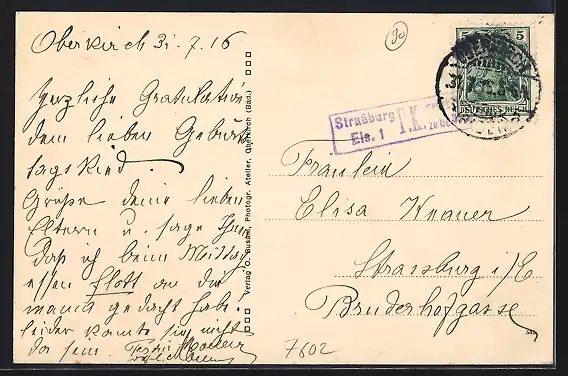 Oberkirch 31.7.16
Herzliche Gratulation
dem lieben Geburts
tagskied.
Grüße deine lieben
Eltern u. sage Ihm
daß ich beim Mittag
essen flott an die
manch gedacht hab.
leider konnte sie nicht
da sein.
Verlag O. Buschl, Photogr. Atelier, Oberkirch (Bad.)
90
5 5
DEUTSCHES REICH
OBERKIRCH
BADEN
Straßburg
Els. 1
P.K.
Fräulein
Elisa Knauer
Strassburg i/E
Bruderhofgasse
7602